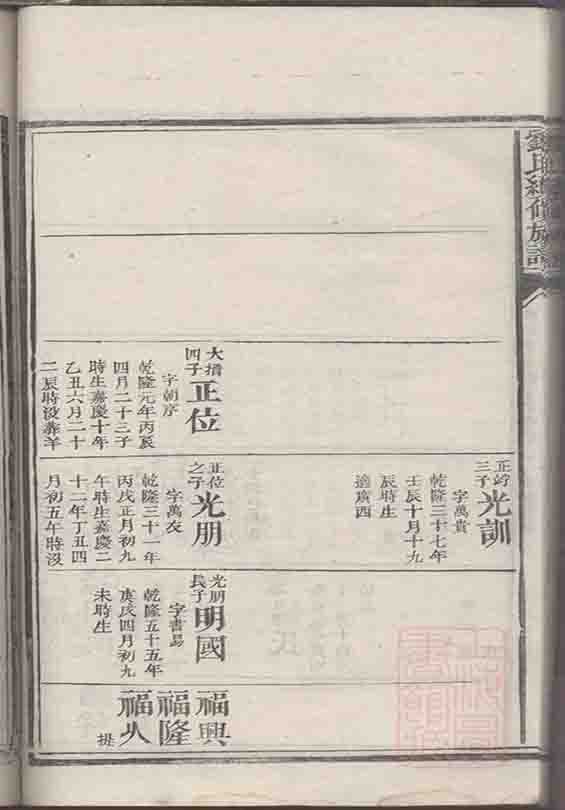 氏續修族譜
正
三子
光訓
字萬貴
乾隆三十七年
壬辰十月十九
辰時生
適廣西
大搢
四子
正位
字朝序
乾隆元年丙辰
四月二十三子
時生嘉慶十年
乙丑六月二十
二辰時沒葬羊
正位
之子
光朋
字萬友
乾隆三十一年
丙戌正月初九
午時生嘉慶二
十二年丁丑四
月初五午時沒
光朋
長子
明國
字書易
乾隆五十五年
庚戌四月初九
未時生
福興
福隆
福火
提